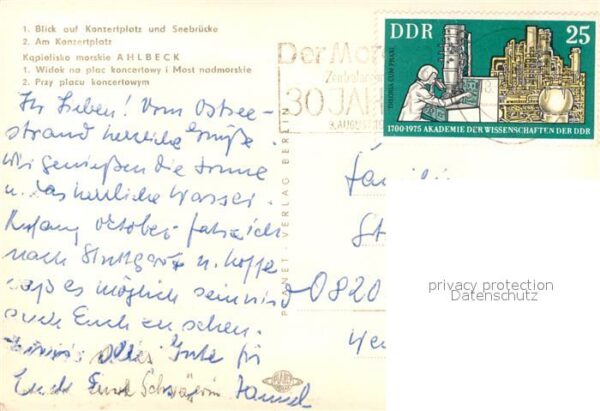 1. Blick auf Konzertplatz und Seebrücke
2. Am Konzertplatz
Kąpielisko morskie AHLBECK
1. Widok na plac koncertowy i Most nadmorskie
2. Przy placu koncertowym
Ihr Lieben! Vom Ostsee-
strand herzliche Grüße.
Wir genießen die Sonne
u. das herrliche Wasser.
Anfang Oktober fahre ich
nach Stuttgart u. hoffe
daß es möglich sein wird
auch Euch zu sehen.
alles Gute für
Euch Eure Schwägerin
PLANET VERLAG BERLIN
PLANET
Der Mor
30 JAH
8. AUGUST
DDR 25
THEORIA CUM PRAXI
1700-1975 AKADEMIE DER WISSENSCHAFTEN DER DDR
Famili
St
0820
privacy protection
Datenschutz